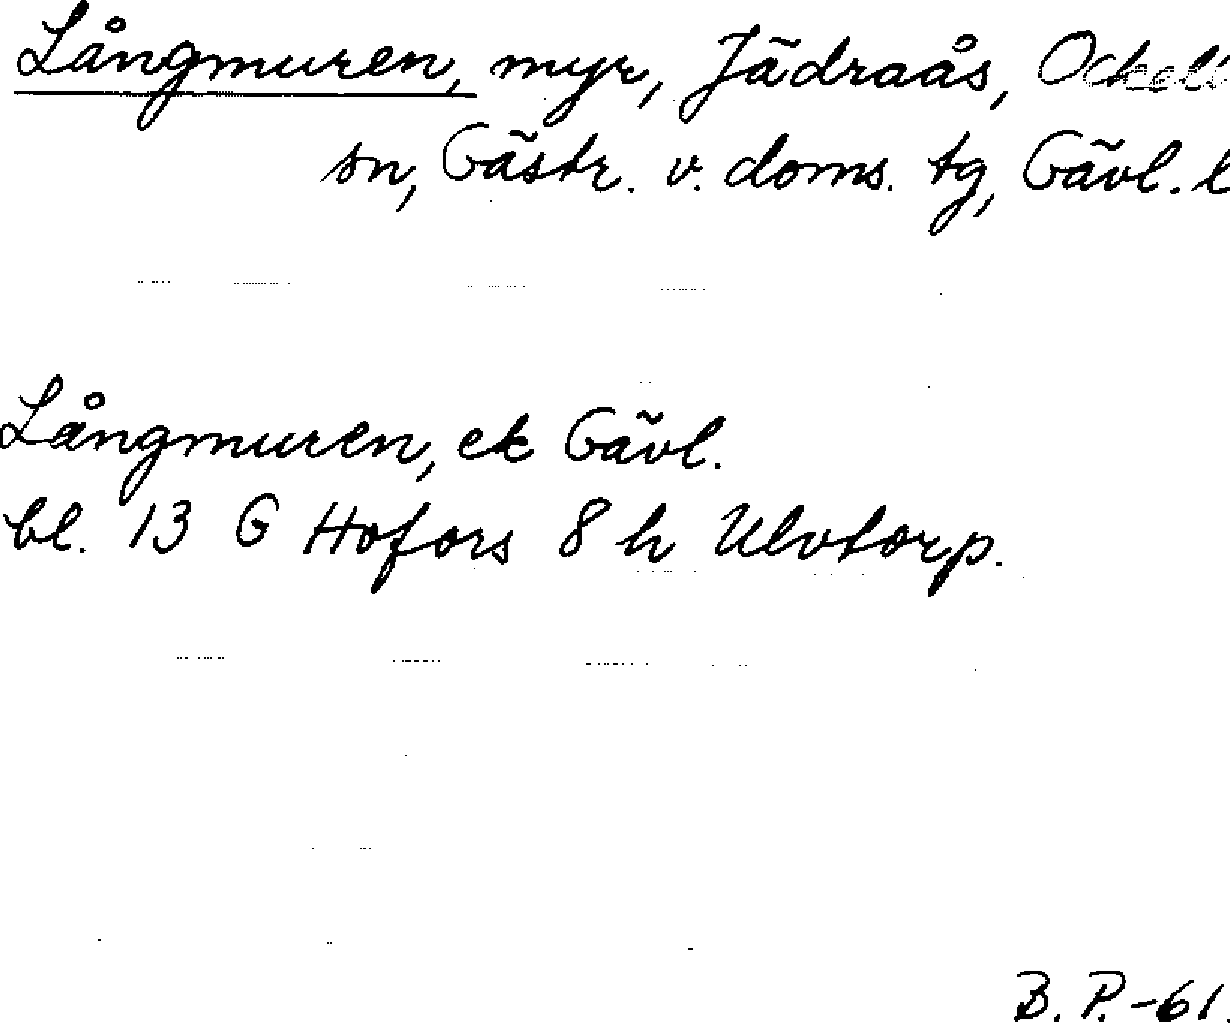 Långmuren, myr, Jädraås, Ockelb
sn, Gästr. v. doms. tg, Gävl. l
Långmuren, ek Gävl.
bl. 13 G Hofors 8 h Ulvtorp.
B. P. -61.